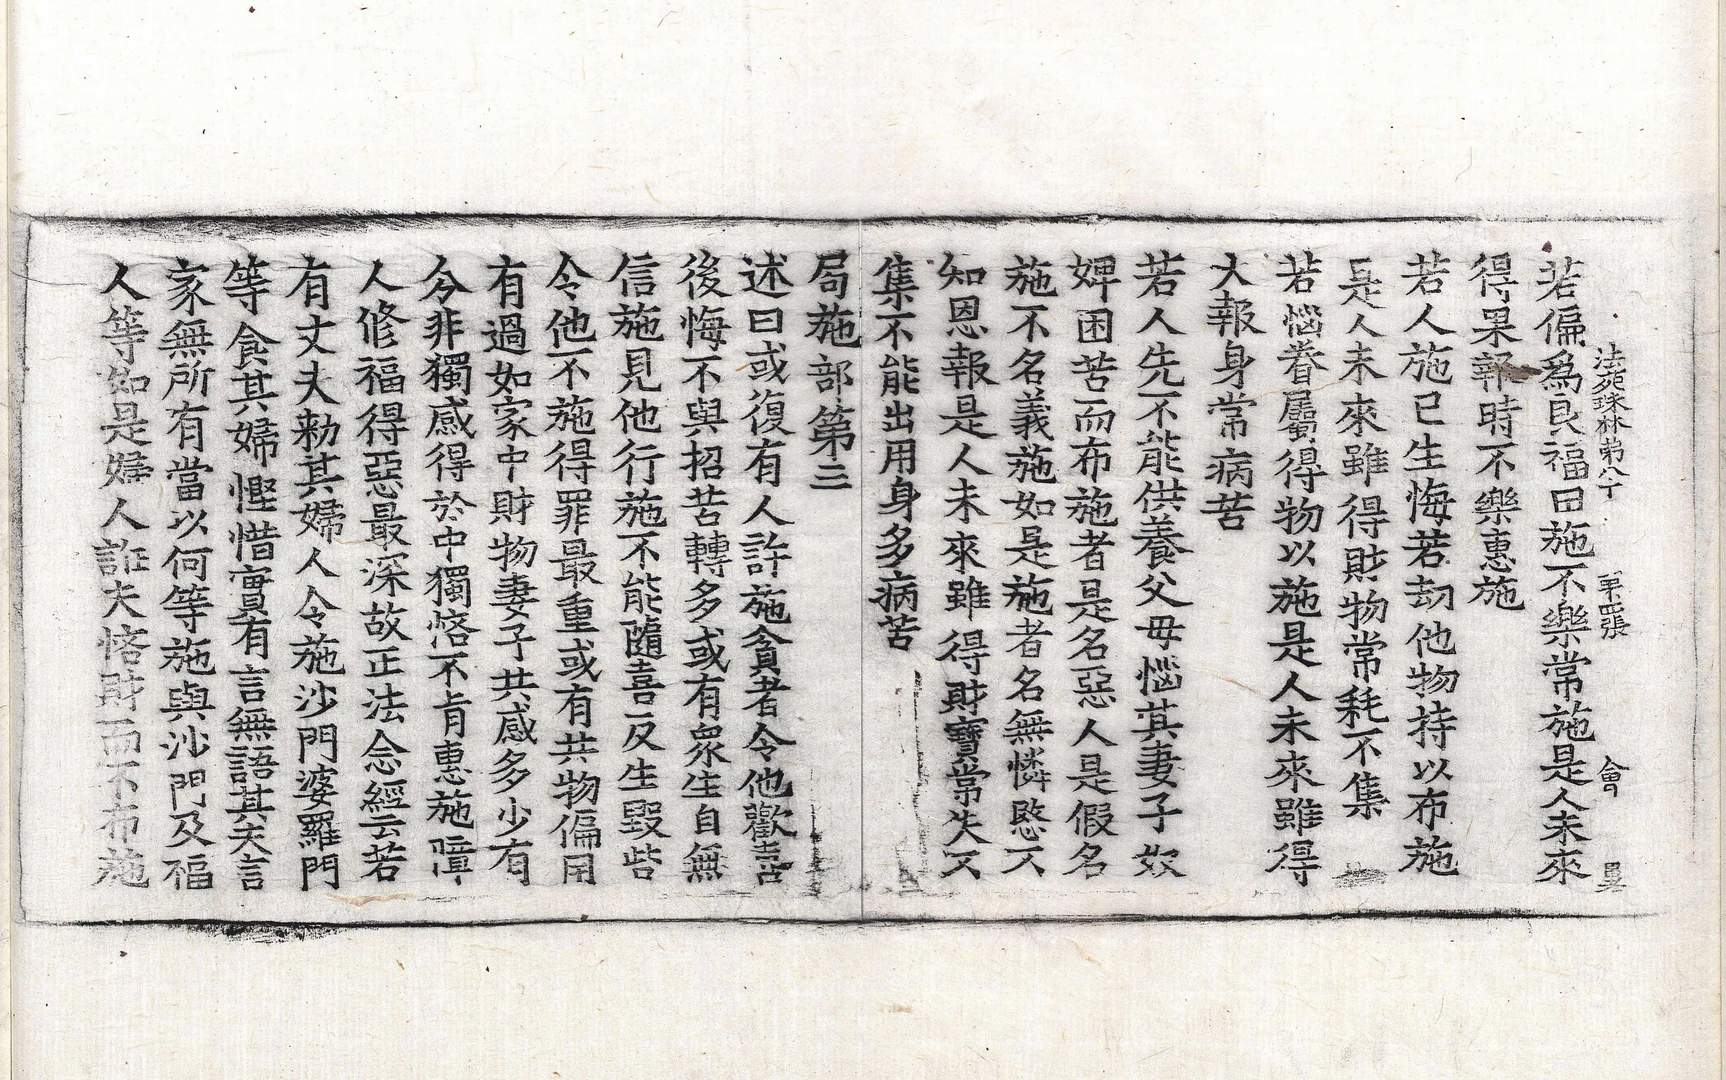 法苑珠林第八十 第四張 會
若偏爲良福田施不樂常施是人未來
得果報時不樂惠施
若人施已生悔若刼他物持以布施
是人未來雖得財物常耗不集
若惱眷屬得物以施是人未來雖得
大報身常病苦
若人先不能供養父母惱其妻子奴
婢困苦而布施者是名惡人是假名
施不名義施如是施者名無憐愍不
知恩報是人未來雖得財寶常失不
集不能出用身多病苦
局施部第三
述曰或復有人許施貧者令他歡喜
後悔不與招苦轉多或有衆生自無
信施見他行施不能隨喜反生毀呰
令他不施得罪最重或有共物偏用
有過如家中財物妻子共感多少有
分非獨感得於中獨悋不肯惠施障
人修福得惡最深故正法念經云若
有丈夫勑其婦人令施沙門婆羅門
等食其婦慳惜實有言無語其夫言
家無所有當以何等施與沙門及福
人等如是婦人誑夫悋財而不布施